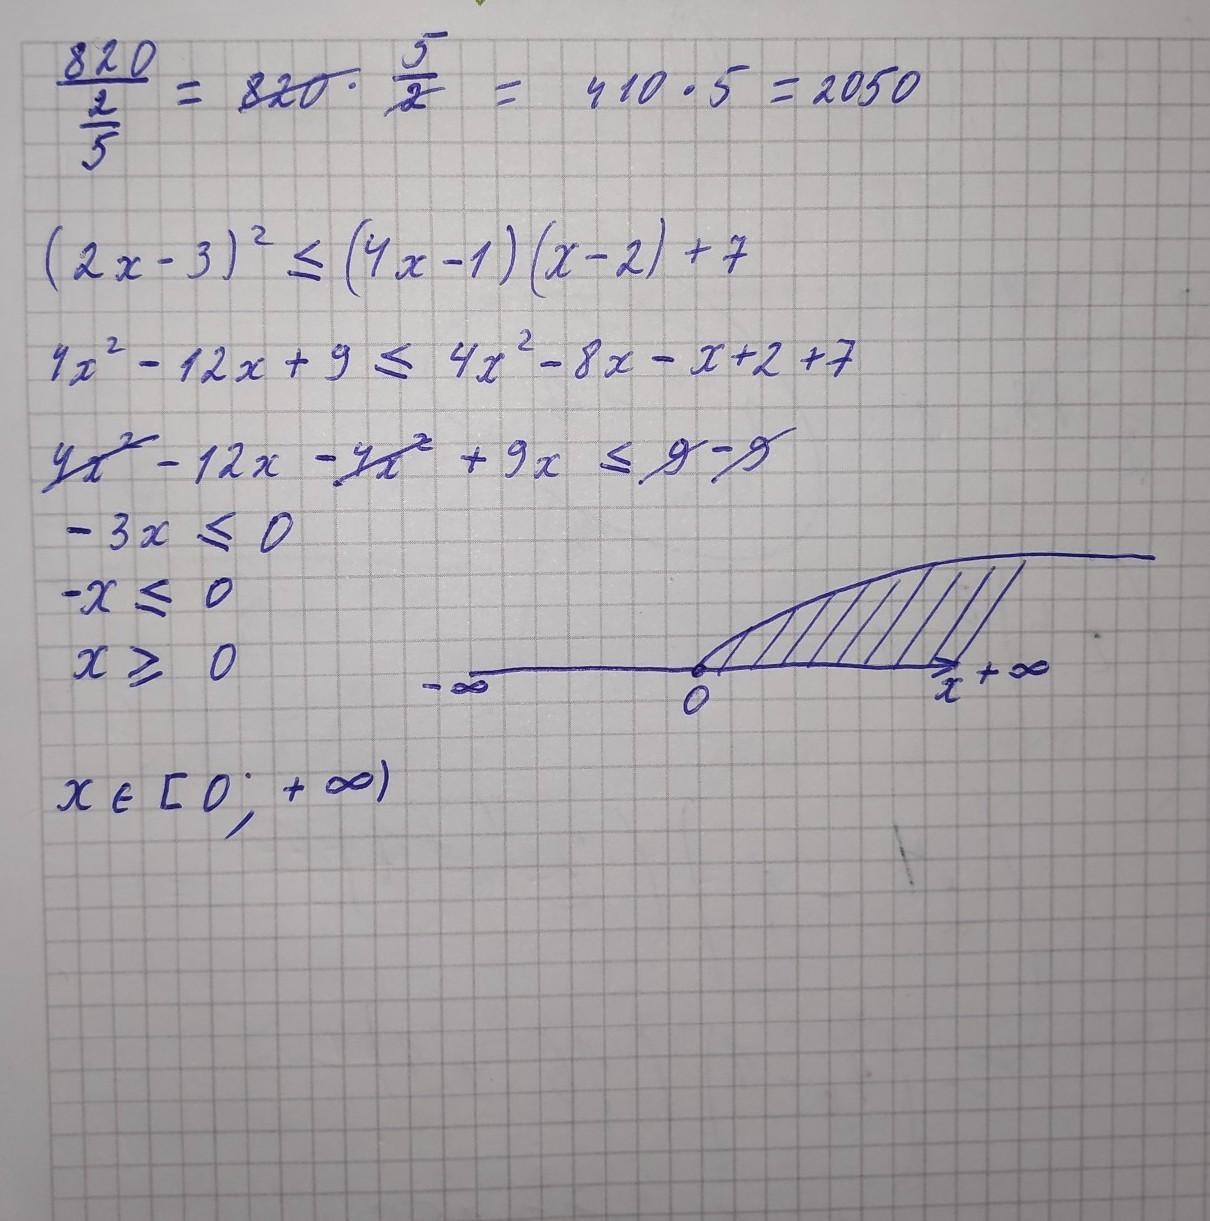 820/(2/5) = 820 · 5/2 = 410 · 5 = 2050
(2x - 3)² ≤ (4x - 1)(x - 2) + 7
4x² - 12x + 9 ≤ 4x² - 8x - x + 2 + 7
4x² - 12x - 4x² + 9x ≤ 9 - 9
- 3x ≤ 0
-x ≤ 0
x ≥ 0
-∞ 0 x +∞
x ∈ [0; +∞)